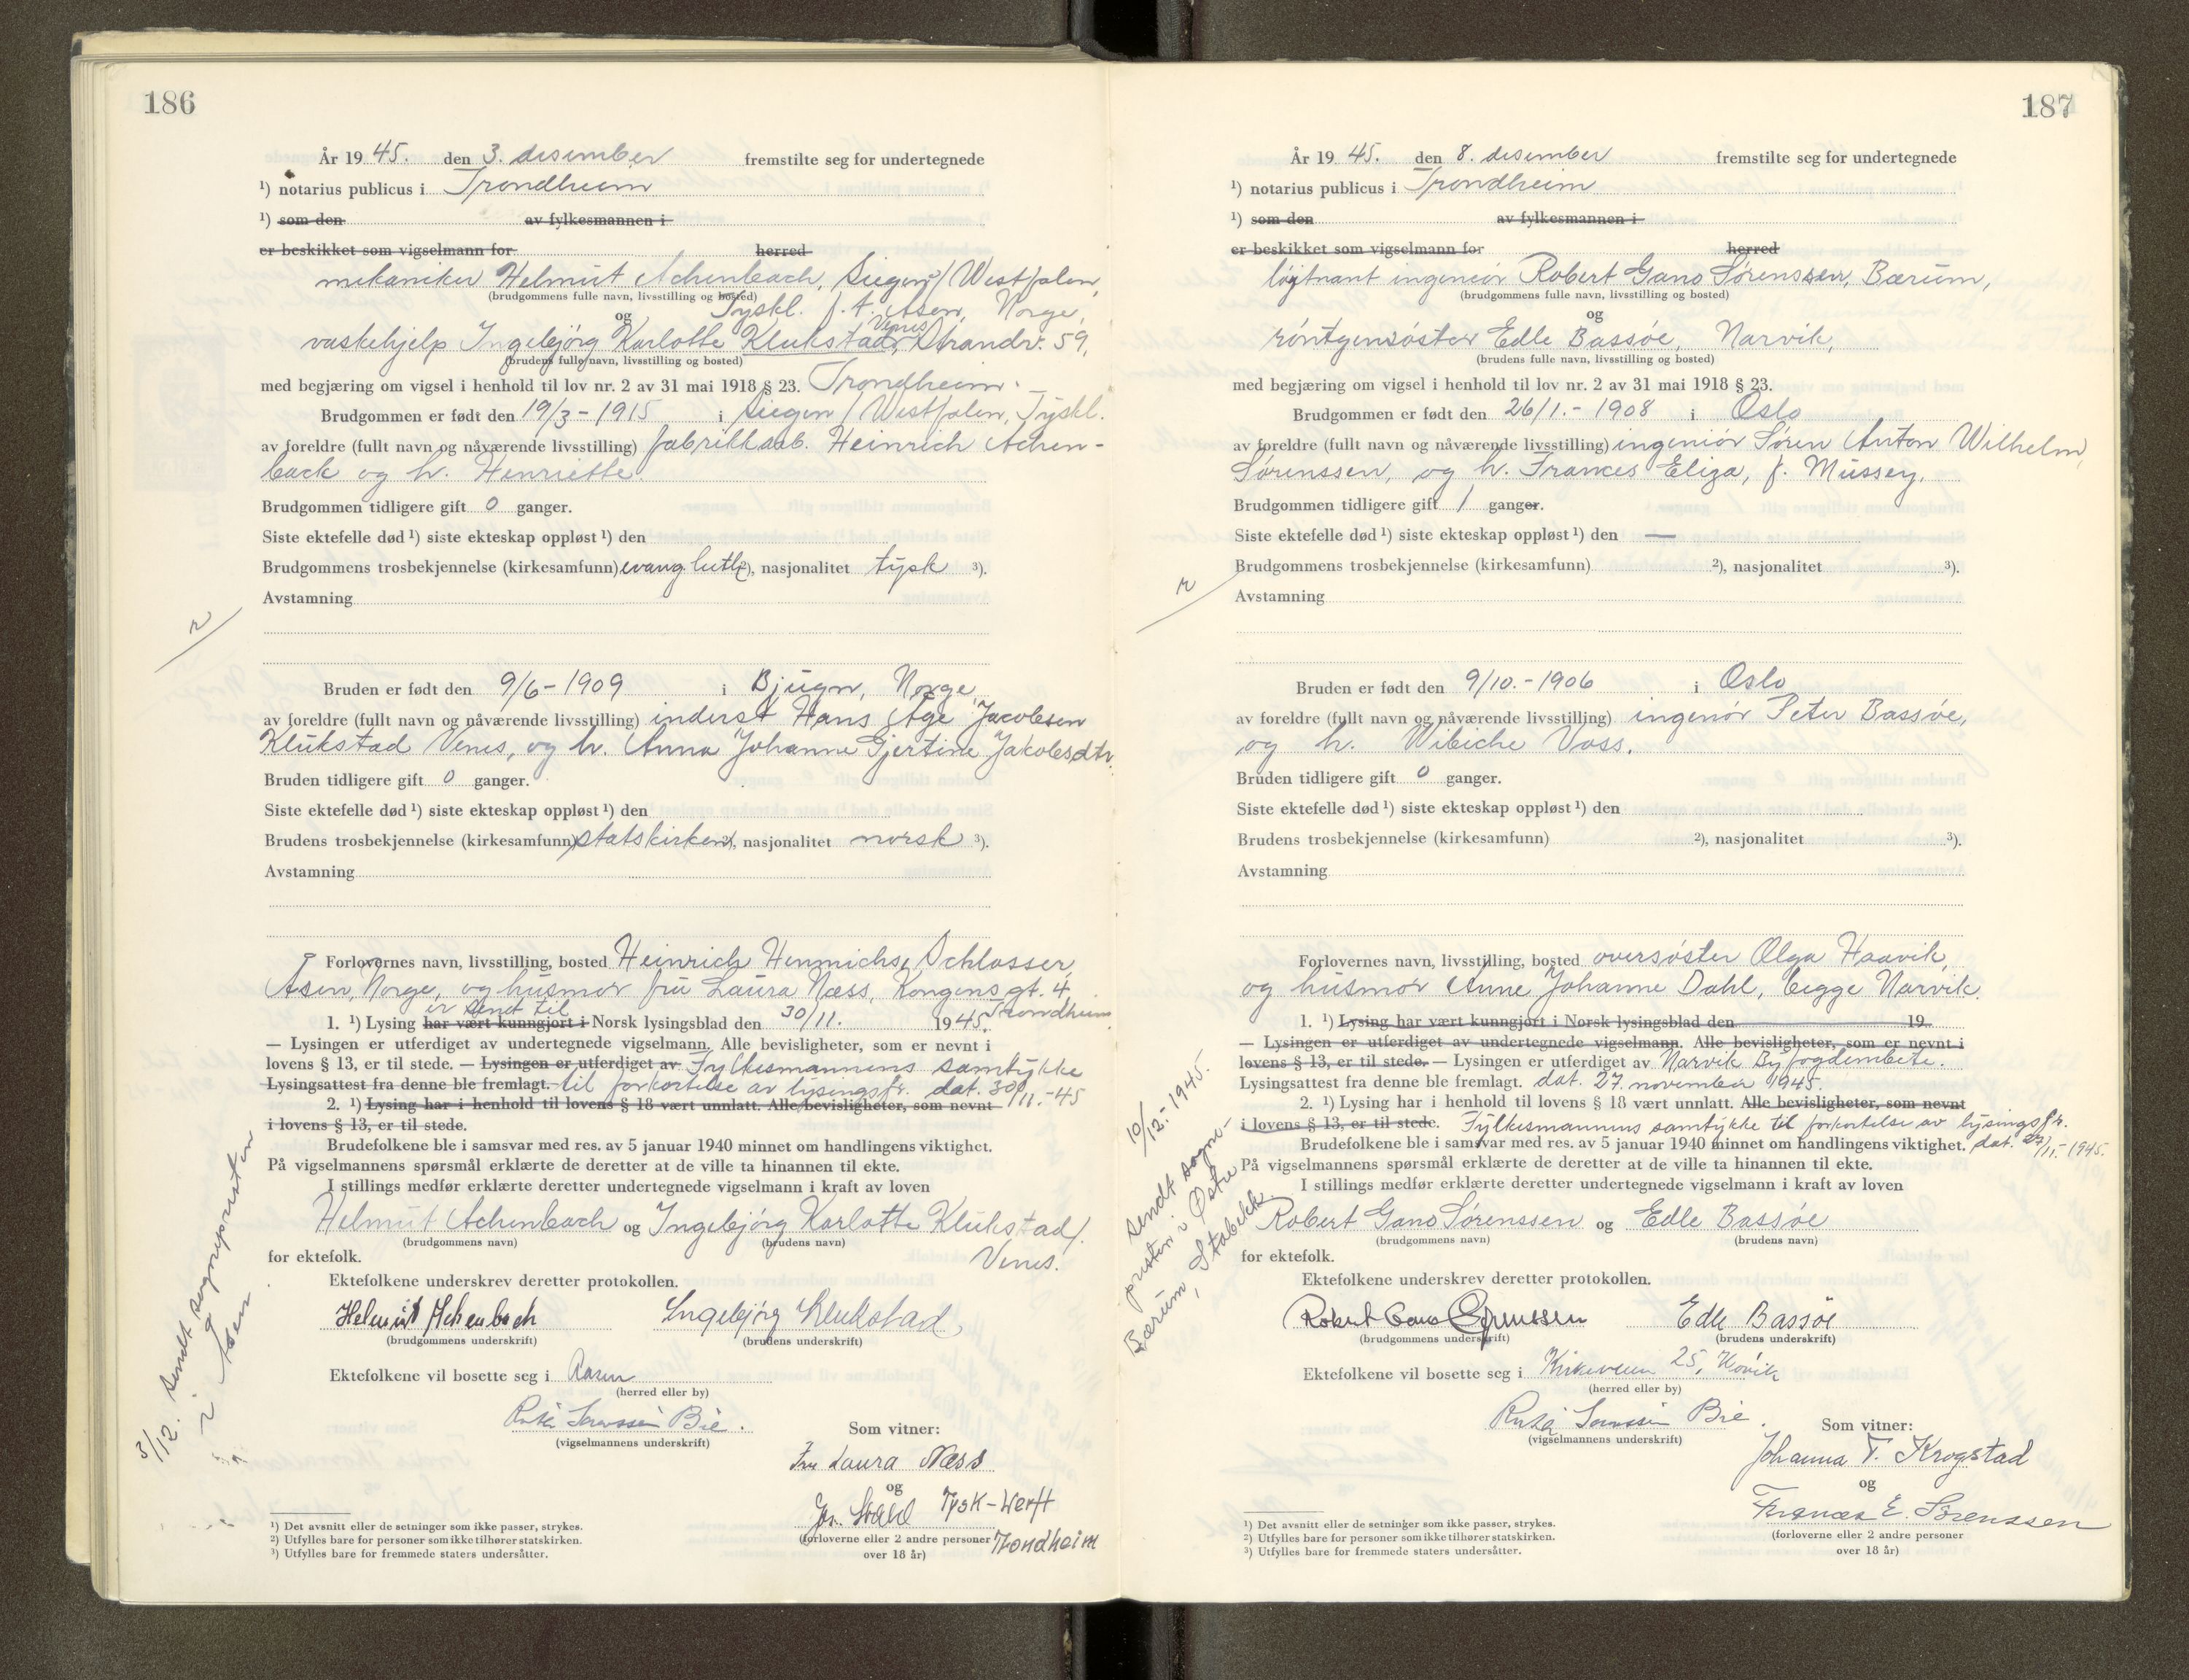 186
År 1945. den 3. desember fremstilte seg for undertegnede
¹) notarius publicus i Trondheim
¹) som den av fylkesmannen i
er beskikket som vigselmann for herred
mekaniker Helmut Achenbach, Siegen / Westfalen,
(brudgommens fulle navn, livsstilling og bosted)
Tyskl. f. t. Åsen, Norge,
og
Venus
vaskehjelp Ingebjørg Karlotte Klukstad, Strandv. 59,
(brudens fulle navn, livsstilling og bosted)
med begjæring om vigsel i henhold til lov nr. 2 av 31 mai 1918 § 23. Trondheim.
Brudgommen er født den 19/3 - 1915 i Siegen / Westfalen, Tyskl.
av foreldre (fullt navn og nåværende livsstilling) fabrikkarb. Heinrich Achen-
back og h. Henriette.
Brudgommen tidligere gift 0 ganger.
Siste ektefelle død ¹) siste ekteskap oppløst ¹) den
Brudgommens trosbekjennelse (kirkesamfunn) evang luth ²), nasjonalitet tysk ³).
Avstamning
Bruden er født den 9/6 - 1909 i Bjugn, Norge,
av foreldre (fullt navn og nåværende livsstilling) inderst Hans Åge Jacobsen
Klukstad Venus, og h. Anna Johanne Gjertine Jakobsdtr.
Bruden tidligere gift 0 ganger.
Siste ektefelle død ¹) siste ekteskap oppløst ¹) den
Brudens trosbekjennelse (kirkesamfunn) statskirken ²), nasjonalitet norsk ³).
Avstamning
Forlovernes navn, livsstilling, bosted Heinrich Schlosser,
Åsen, Norge, og husmor fru Laura Næss, Kongens gt. 4,
er sendt til Trondheim.
1. ¹) Lysing har vært kunngjort i Norsk lysingsblad den 30/11. 1945.
— Lysingen er utferdiget av undertegnede vigselmann. Alle bevisligheter, som er nevnt i
lovens § 13, er til stede. — Lysingen er utferdiget av Fylkesmannens samtykke
Lysingsattest fra denne ble fremlagt. til forkortelse av lysingsfr. dat. 30/11.-45
2. ¹) Lysing har i henhold til lovens § 18 vært unnlatt. Alle bevisligheter, som nevnt
i lovens § 13, er til stede.
Brudefolkene ble i samsvar med res. av 5 januar 1940 minnet om handlingens viktighet.
På vigselmannens spørsmål erklærte de deretter at de ville ta hinannen til ekte.
I stillings medfør erklærte deretter undertegnede vigselmann i kraft av loven
Helmut Achenbach og Ingebjørg Karlotte Klukstad /
(brudgommens navn) (brudens navn)
for ektefolk. Venus.
Ektefolkene underskrev deretter protokollen.
Helmut Achenbach Ingebjørg Klukstad,
(brudgommens underskrift) (brudens underskrift)
Ektefolkene vil bosette seg i Aasen
(herred eller by)
Sørenssen Bie.
(vigselmannens underskrift)
Som vitner:
Fru Laura Næss
og
Tysk-Werft
Trondheim
(forloverne eller 2 andre personer
over 18 år)
¹) Det avsnitt eller de setninger som ikke passer, strykes.
²) Utfylles bare for personer som ikke tilhører statskirken.
³) Utfylles bare for fremmede staters undersåtter.
3/12. sendt sognepresten
i Åsen
187
År 1945. den 8. desember fremstilte seg for undertegnede
¹) notarius publicus i Trondheim
¹) som den av fylkesmannen i
er beskikket som vigselmann for herred
løjtnant ingeniør Robert Gano Sørenssen, Bærum,
(brudgommens fulle navn, livsstilling og bosted)
og
røntgensøster Edle Bassøe, Narvik,
(brudens fulle navn, livsstilling og bosted)
med begjæring om vigsel i henhold til lov nr. 2 av 31 mai 1918 § 23.
Brudgommen er født den 26/1.- 1908 i Oslo
av foreldre (fullt navn og nåværende livsstilling) ingeniør Søren Anton Wilhelm
Sørenssen, og h. Frances Eliza, f. Mussey.
Brudgommen tidligere gift 1 ganger.
Siste ektefelle død ¹) siste ekteskap oppløst ¹) den —
Brudgommens trosbekjennelse (kirkesamfunn) ²), nasjonalitet ³).
Avstamning
Bruden er født den 9/10.- 1906 i Oslo
av foreldre (fullt navn og nåværende livsstilling) ingeniør Peter Bassøe,
og h. Wibiche Voss.
Bruden tidligere gift 0 ganger.
Siste ektefelle død ¹) siste ekteskap oppløst ¹) den
Brudens trosbekjennelse (kirkesamfunn) ²), nasjonalitet ³).
Avstamning
Forlovernes navn, livsstilling, bosted oversøster Olga Haavik,
og husmor Anne Johanne Dahl, begge Narvik.
1. ¹) Lysing har vært kunngjort i Norsk lysingsblad den 19
— Lysingen er utferdiget av undertegnede vigselmann. Alle bevisligheter, som er nevnt i
lovens § 13, er til stede. — Lysingen er utferdiget av Narvik Byfogdembete.
Lysingsattest fra denne ble fremlagt. dat. 27. november 1945.
2. ¹) Lysing har i henhold til lovens § 18 vært unnlatt. Alle bevisligheter, som nevnt
i lovens § 13, er til stede. Fylkesmannens samtykke til forkortelse av lysingsfr.
Brudefolkene ble i samsvar med res. av 5 januar 1940 minnet om handlingens viktighet. dat. 27/11.- 1945.
På vigselmannens spørsmål erklærte de deretter at de ville ta hinannen til ekte.
I stillings medfør erklærte deretter undertegnede vigselmann i kraft av loven
Robert Gano Sørenssen og Edle Bassøe
(brudgommens navn) (brudens navn)
for ektefolk.
Ektefolkene underskrev deretter protokollen.
Robert Gano Sørenssen Edle Bassøe
(brudgommens underskrift) (brudens underskrift)
Ektefolkene vil bosette seg i Kirkeveien 25, Høvik
(herred eller by)
Sørenssen Bie.
(vigselmannens underskrift)
Som vitner:
Johanna T. Krogstad
og
Frances E. Sørenssen
(forloverne eller 2 andre personer
over 18 år)
¹) Det avsnitt eller de setninger som ikke passer, strykes.
²) Utfylles bare for personer som ikke tilhører statskirken.
³) Utfylles bare for fremmede staters undersåtter.
10/12.-1945.
sendt sogne-
presten i Østre
Bærum, Stabekk.